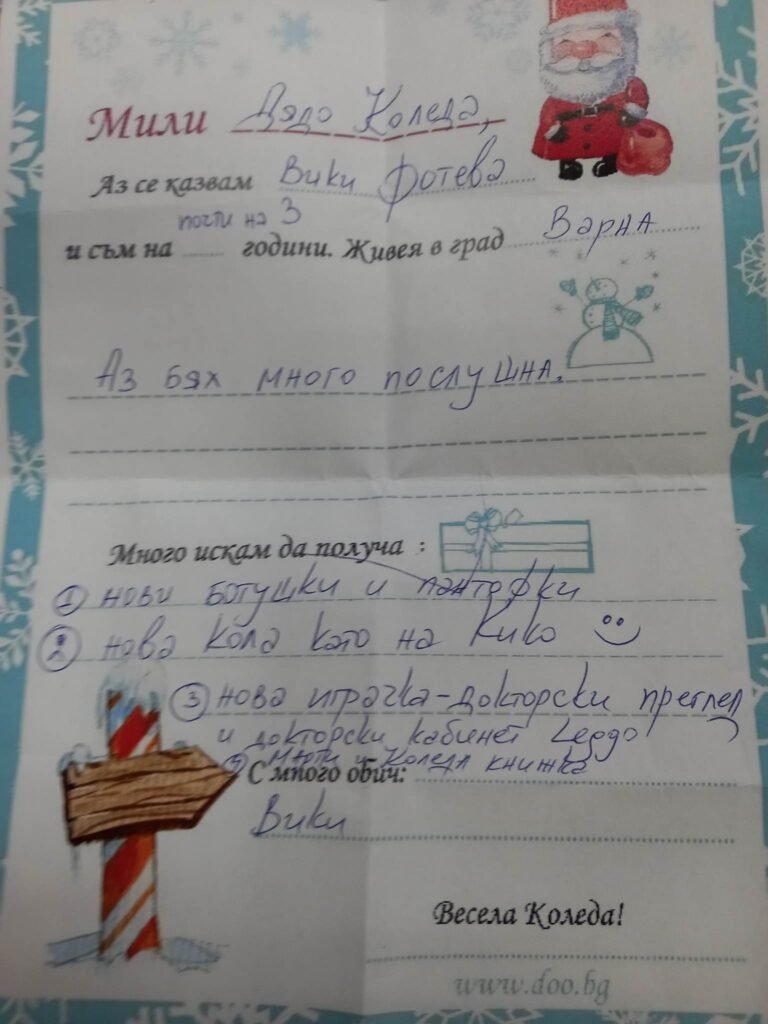 Мили Дядо Коледа,
Аз се казвам Вики Фотева
почти на 3
и съм на ........ години. Живея в град Варна
Аз бях много послушна.
Много искам да получа :
① нови ботушки и пантофки
② нова кола като на Кико :)
③ нова играчка-докторски преглед
и докторски кабинет Leggo
Мапи и Коледа книжка
С много обич:
Вики
Весела Коледа!
www.doo.bg